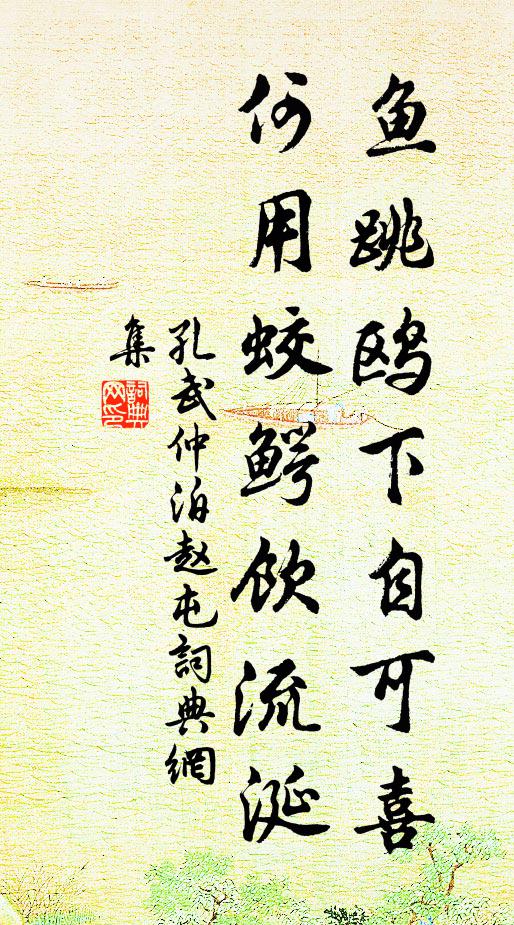 鱼跳鸥下自可喜
何用蛟鳄饮流涎
孔武仲泊赵屯詞典網
集
詞典
网印